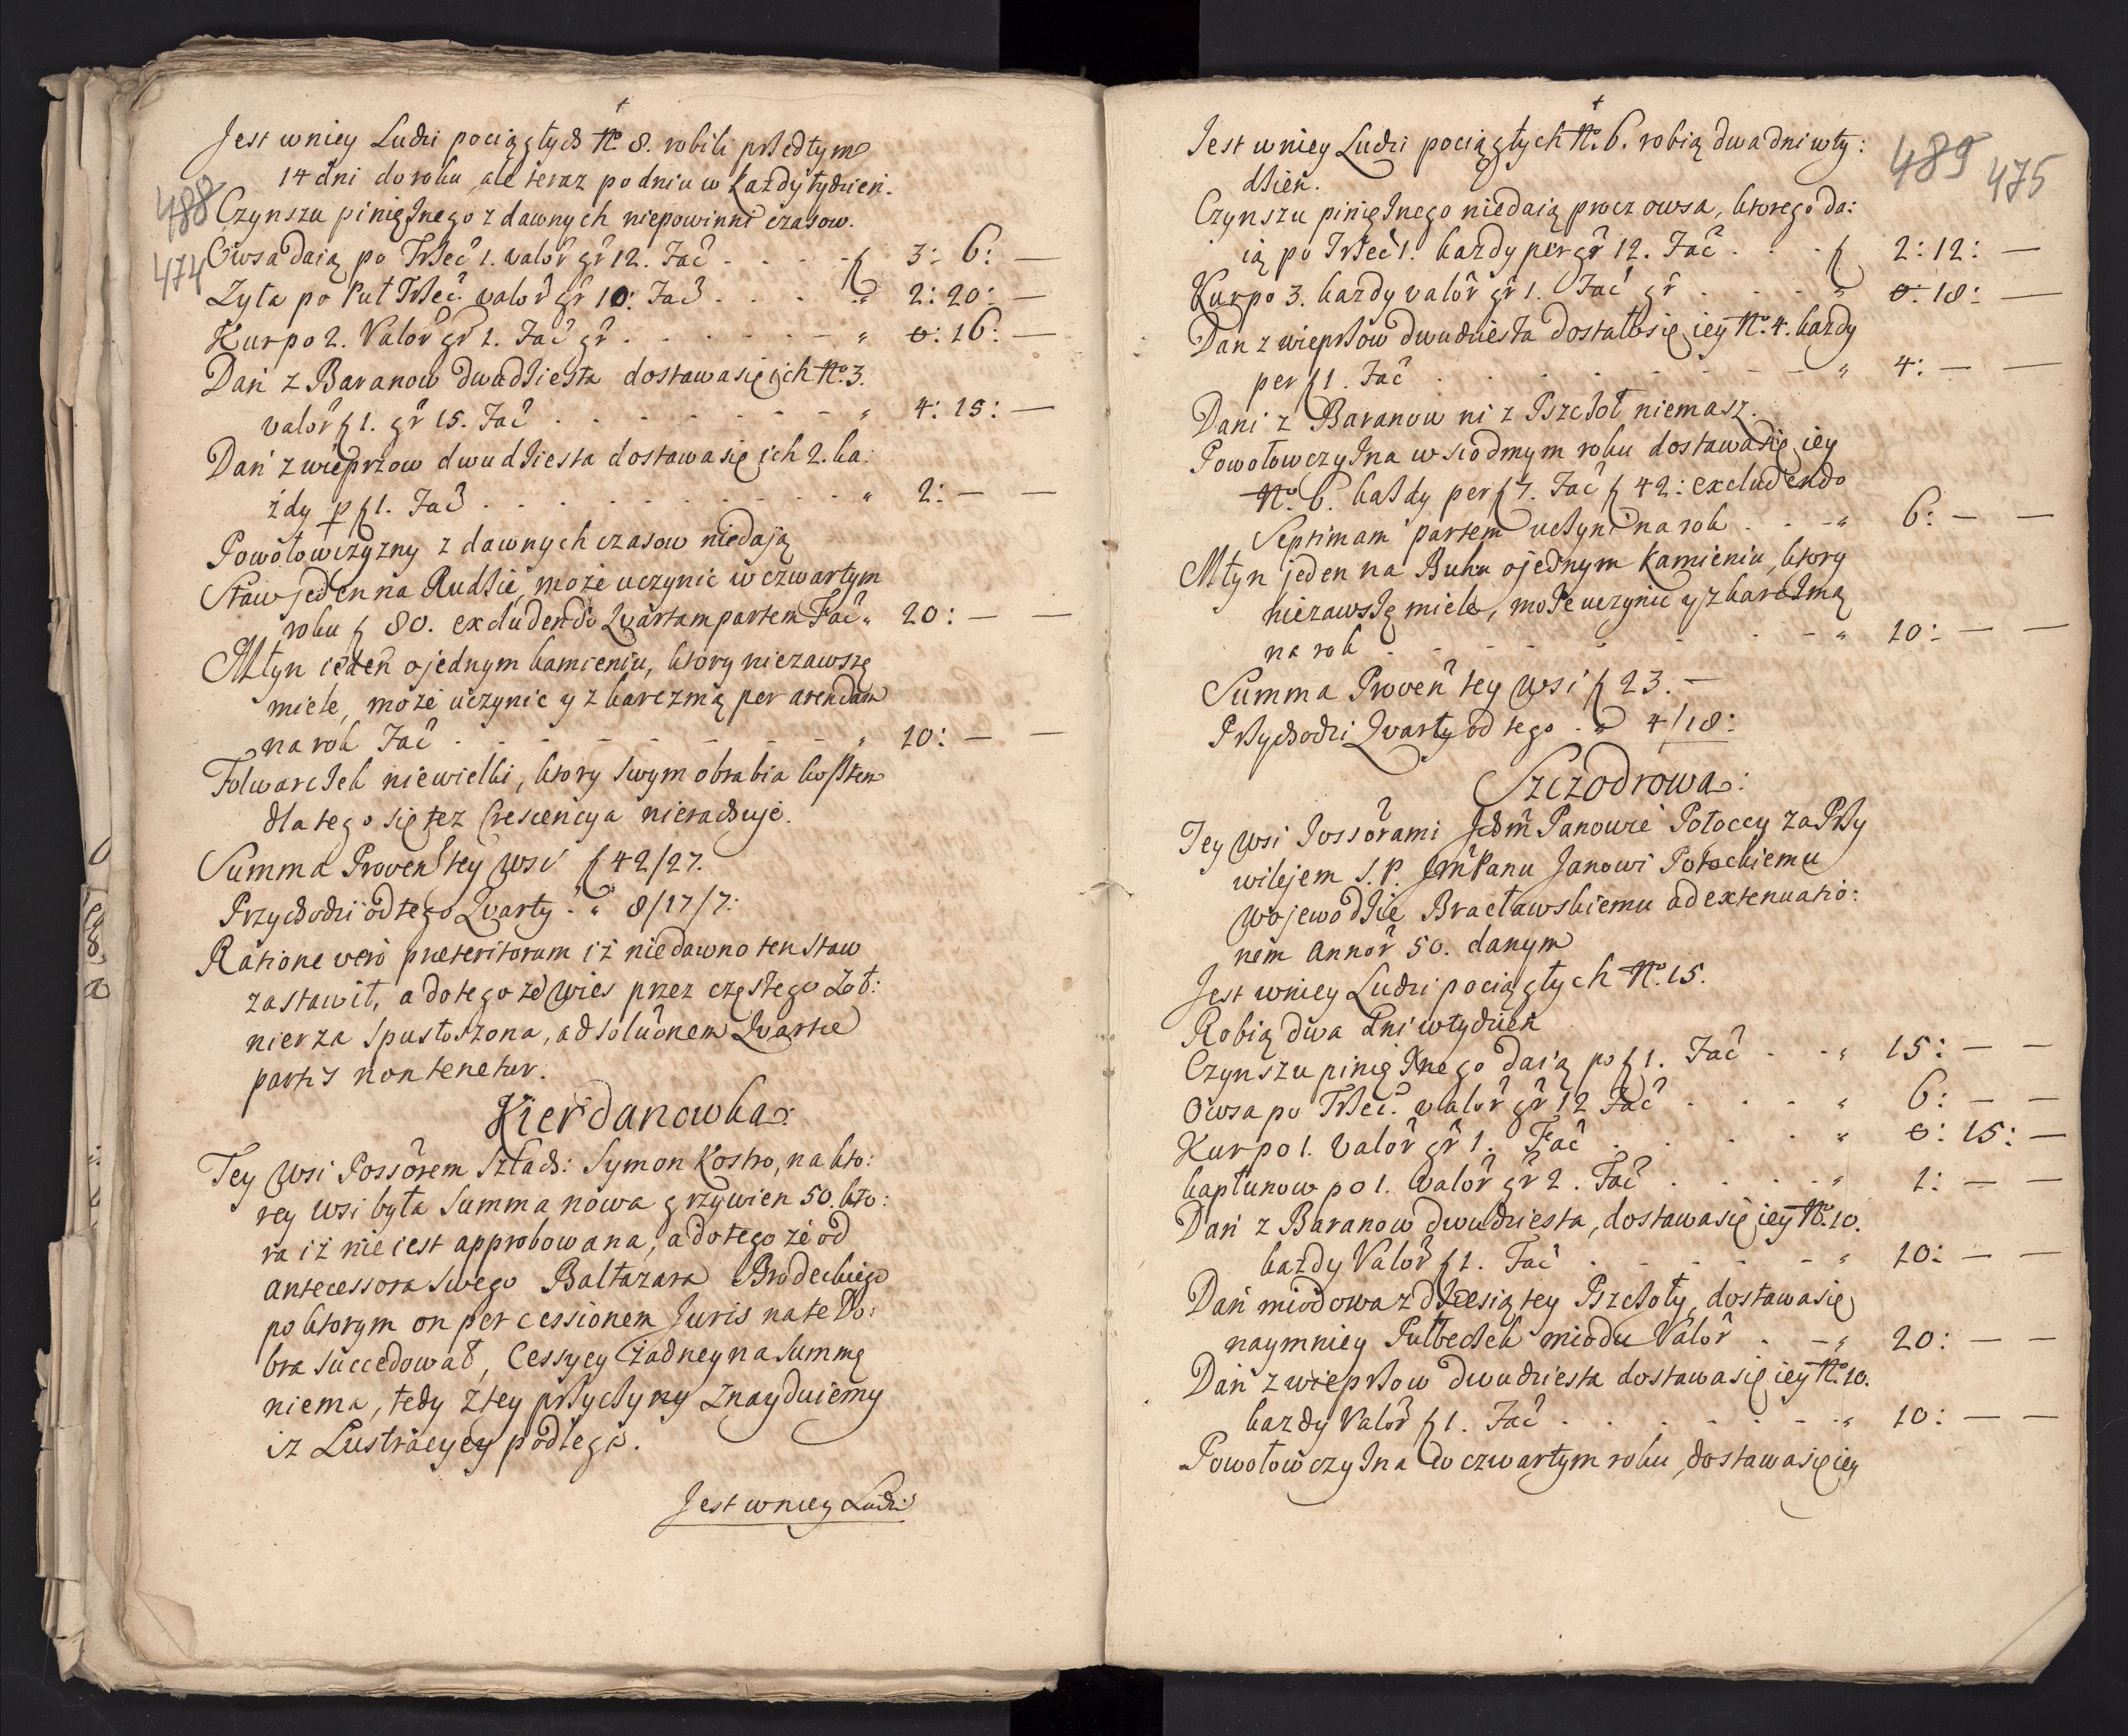 Jest wniey Ludzi pociągłych No. 8. robili przedtym
14 dni do roku, ale teraz po dniu w każdy tydzień.
488
Czynszu pinięznego z dawnych niepowinni czasow.
474
Owsa daią po Trzeć 1. valor gr 12. Fać - - - f 3: 6: —
Zyta po Puł Trzeć. valor gr 10: Fać . . . " 2: 20: —
Kur po 2. Valor gr 1. Fać gr . . . . . - - " 0: 16: —
Dań z Baranow dwudziesta dostawa się ich No. 3.
valor f 1. gr 15. Fać . . - - - - - - " 4: 15: —
Dań z wieprzow dwudziesta dostawa się ich 2. ka:
żdy p f 1. Fać . . . . . . . . . . " 2: — —
Powołowczyzny z dawnych czasow niedają
Staw jeden na Rudzie, może uczynić w czwartym
roku f 80. excludendo Quartam partem Fać " 20: — —
Młyn ieden o jednym kamieniu, ktory niezawszę
miele, może uczynić y z karczmą per arendam
na rok Fać . - - - - - - - " 10: — —
Folwarczek niewielki, ktory swym obrabia kosztem
dla tego się tez Crescencya nierachuje.
Summa Proven tey Wsi f 42/27.
Przychodzi od tego Quarty . " 8/17/7:
Ratione vero præteritorum iż niedawno ten staw
zastawił, a do tego że Wieś przez częstego Zoł:
nierza spustoszona, ad solucionem Quartæ
partis non tenetur.
Kierdanowka:
Tey Wsi Possorem Szlach: Symon Kostro, na kto:
rey Wsi była Summa nowa grzywien 50. kto:
ra iż nie iest approbowana, a do tego że od
Antecessora swego Baltazara Brodeckiego
po ktorym on per cessionem Juris na te Do:
bra succedował, Cessyey żadney na Summę
niema, tedy z tey przyczyny znayduiemy
iz Lustracyey podlega.
Jest wniey Ludzi
Jest wniey Ludzi pociągłych No. 6. robią dwa dni w ty:
dzień.
489 475
Czynszu pinięznego niedaią procz owsa, ktorego da:
ią po Trzeć 1. każdy per gr 12. Fać . . . f 2: 12: —
Kur po 3. każdy valor gr 1. Fać gr . . . . " 0: 18: —
Dan z wieprzow dwudziesta dostało się iey No. 4. każdy
per f 1. Fać . . . . . . - - - " 4: — —
Dani z Baranow ni z Pszczoł niemasz.
Powołowczyzna w siodmym roku dostawa się iey
No. 6. każdy per f 7. Fać f 42: excludendo
Septimam partem uczyni na rok . . - " 6: — —
Młyn jeden na Buhu o jednym Kamieniu, ktory
niezawszę miele, może uczynić y z karczmą
na rok . - - - - - - - - " 10: — —
Summa Proven tey Wsi f 23. —
Przychodzi Quarty od tego . " 4/18:
Szczodrowa:
Tey Wsi Possorami Jchm Panowie Potoccy za Przy
wilejem S. P. Jm Panu Janowi Potockiemu
Wojewodzie Bracławskiemu ad extenuatio:
nem Annor 50. danym
Jest wniey Ludzi pociągłych No. 15.
Robią dwa dni w tydzień
Czynszu pinięznego daią po f 1. Fać . . " 15: — —
Owsa po Trzeć. valor gr 12 Fać . . . . " 6: — —
Kur po 1. Valor gr 1. Fać . . . . . " 0: 15: —
kapłunow po 1. Valor gr 2. Fać . . . . " 1: — —
Dań z Baranow dwudziesta, dostawa się iey No. 10.
każdy Valor f 1. Fać . - - - - - " 10: — —
Dań miodowa z dziesiątey Pszczoły, dostawa się
naymniey Pułbeczek miodu Valor . - " 20: — —
Dań z wieprzow dwudziesta dostawa się iey No. 10.
każdy Valor f 1. Fać . . . . . - - " 10: — —
Powołowczyzna w czwartym roku, dostawa się iey